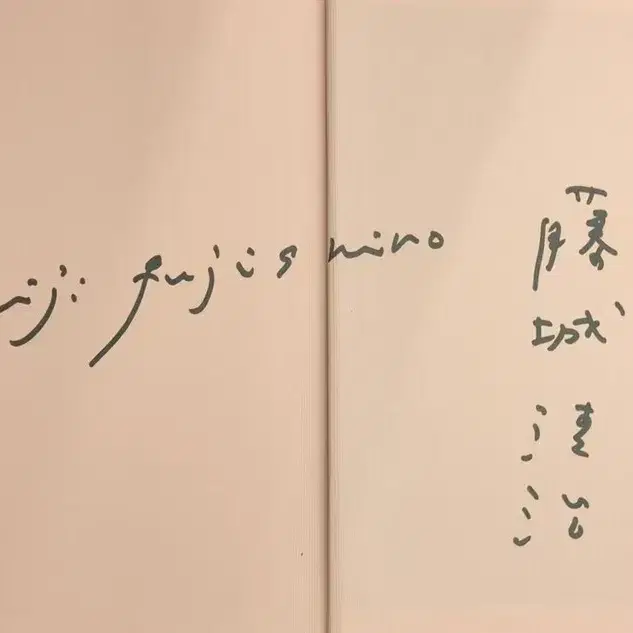 iji fujishiro
藤城清治